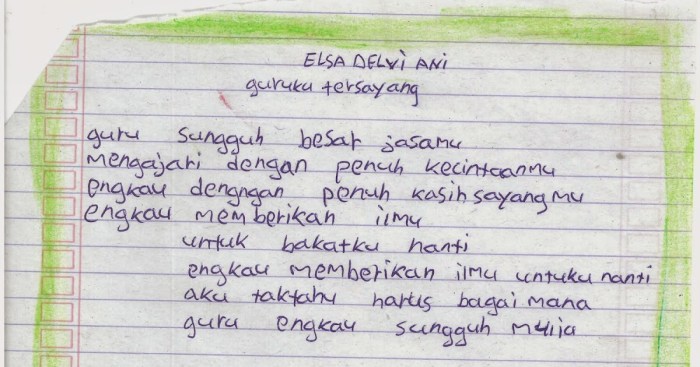 ELSA DELVI ANI
guruku tersayang
guru sungguh besar jasamu
mengajari dengan penuh kecintaanmu
engkau dengngan penuh kasih sayangmu
engkau memberikan ilmu
untuk bakatku nanti
engkau memberikan ilmu untuku nanti
aku taktahu harus bagai mana
guru engkau sungguh mulia